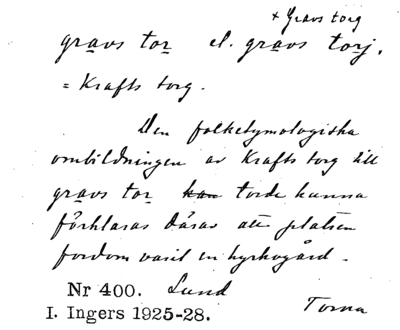 + Gravs torg
gravs tor el. gravs torj.
= Krafts torg.
Den folketymologiska
ombildningen av Krafts torg till
gravs tor kan torde kunna
förklaras därav att platsen
fordom varit en kyrkogård.
Nr 400. Lund
I. Ingers 1925-28. Torna